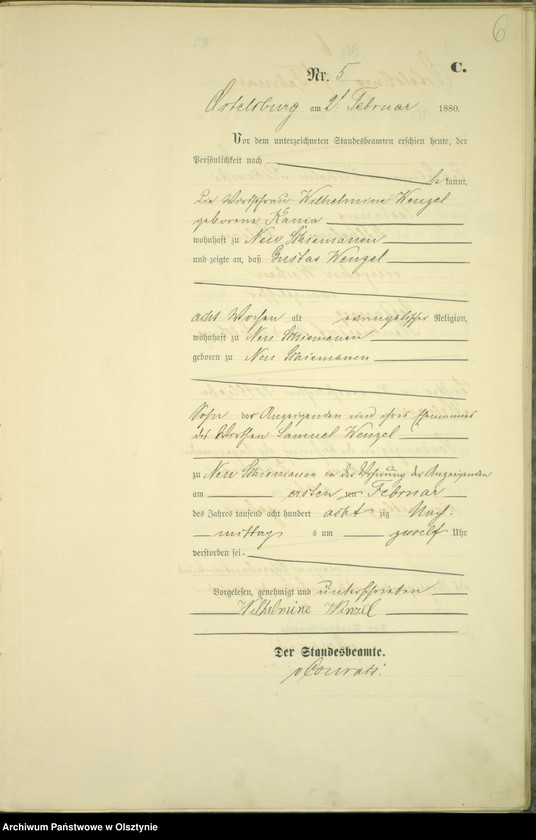 6
C.
Nr. 5
Ortelsburg am 2t Februar 1880.
Vor dem unterzeichneten Standesbeamten erschien heute, der
Persönlichkeit nach
be kannt,
die Wirthsfrau Wilhelmine Wenzel
geborene Kania
wohnhaft zu Neu Schiemanen
und zeigte an, daß Gustav Wenzel
acht Wochen alt evangelischer Religion,
wohnhaft zu Neu Schiemanen
geboren zu Neu Schiemanen
Sohn der Anzeigenden und ihres Ehemannes
des Wirthen Samuel Wenzel
zu Neu Schiemanen in der Wohnung der Anzeigenden
am ersten Februar
des Jahres tausend acht hundert acht zig Nach-
mittags um zwoelf Uhr
verstorben sei.
Vorgelesen, genehmigt und unterschrieben
Wilhelmine Wenzel
Der Standesbeamte.
vConrati.
Archiwum Państwowe w Olsztynie